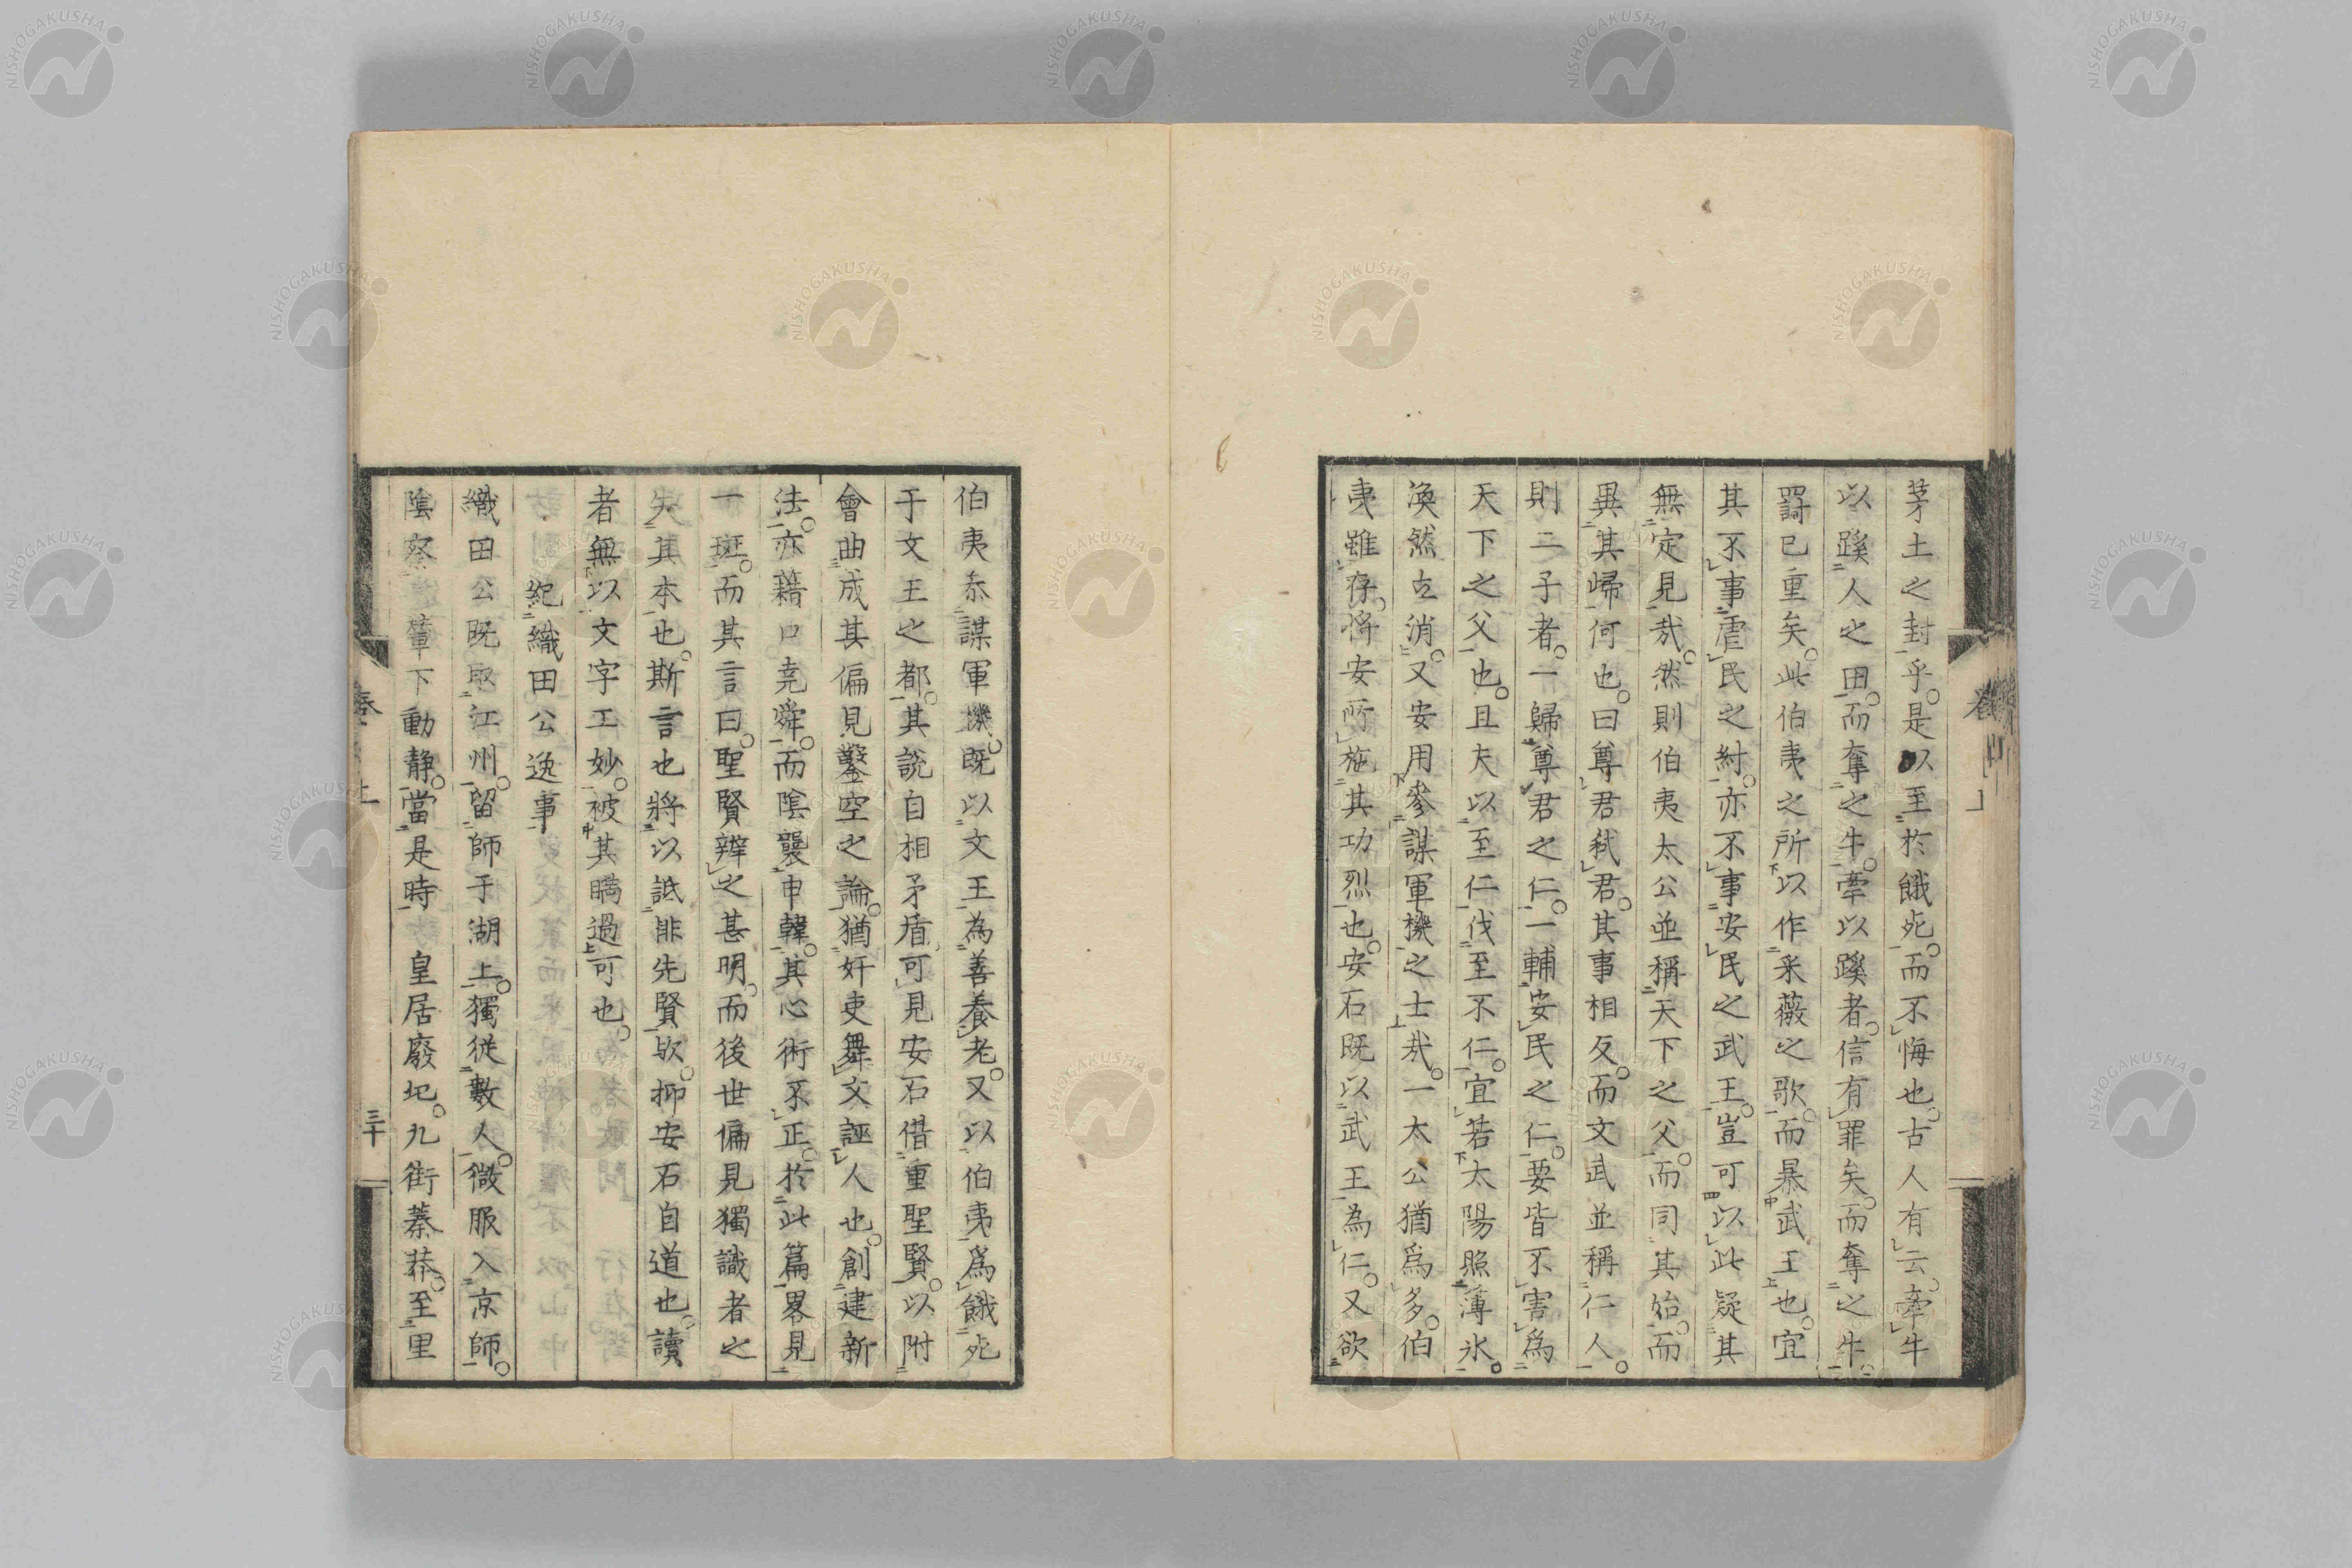 茅土之封乎。是以至於餓死。而不悔也。古人有云。牽牛
以蹊人之田。而奪之牛。牽以蹊者。信有罪矣。而奪之牛。
罰已重矣。此伯夷之所以作采薇之歌。而暴武王也。宜
其不事虐民之紂。亦不事安民之武王。豈可以此疑其
無定見哉。然則伯夷太公並稱天下之父。而同其始。而
異其歸何也。曰尊君弑君。其事相反。而文武並稱仁人。
則二子者。一歸尊君之仁。一輔安民之仁。要皆不害為
天下之父也。且夫以至仁伐至不仁。宜若太陽照薄氷。
渙然立消。又安用參謀軍機之士哉。一太公猶爲多。伯
夷雖存。将安所施其功烈也。安石既以武王為仁。又欲
伯夷叅謀軍機。既以文王為善養老。又以伯夷爲餓死
于文王之都。其説自相矛盾。可見安石借重聖賢。以附
會曲成其偏見鑿空之論。猶奸吏舞文誣人也。創建新
法。亦藉口堯舜。而陰襲申韓。其心術不正。於此篇畧見
一斑。而其言曰。聖賢辨之甚明。而後世偏見獨識者之
失其本也。斯言也將以詆誹先賢歟。抑安石自道也。讀
者無以文字工妙。被其瞞過可也。
紀織田公逸事
織田公既取江州。留師于湖上。獨従數人。微服入京師。
陰察輦下動静。當是時 皇居廢圮。九街蓁莽。至里
卷上
三十
NISHOGAKUSHA